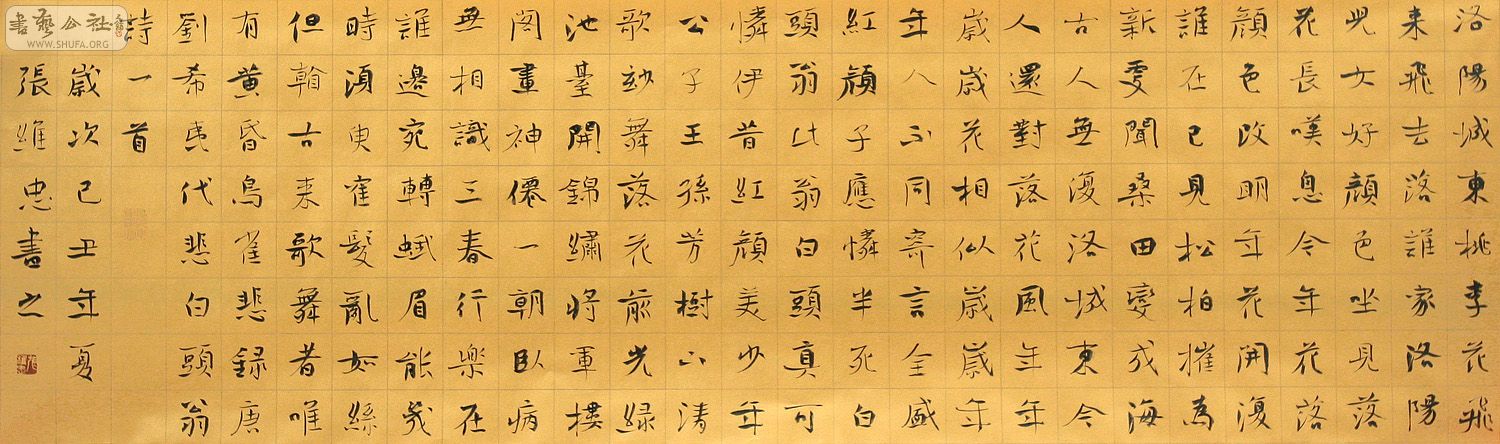 洛陽城東桃李花飛
来飛去落誰家洛陽
兒女好顏色坐見落
花長嘆息今年花落
顏色改明年花開復
誰在已見松柏摧為
新更聞桑田變成海
古人無復洛城東今
人還對落花風年年
歲歲花相似歲歲年
年人不同寄言全盛
紅顏子應憐半死白
頭翁此翁白頭真可
憐伊昔紅顏美少年
公子王孫芳樹下清
歌妙舞落花前光綠
池臺開錦繡將軍樓
閣畫神僊一朝臥病
無相識三春行樂在
誰邊宛轉蛾眉能幾
時須臾隺髮亂如絲
但翰古来歌舞者唯
有黃昏鳥雀悲錄唐
劉希夷代悲白頭翁
詩一首
歲次己丑年夏
張維忠書之
書藝公社
WWW.SHUFA.ORG